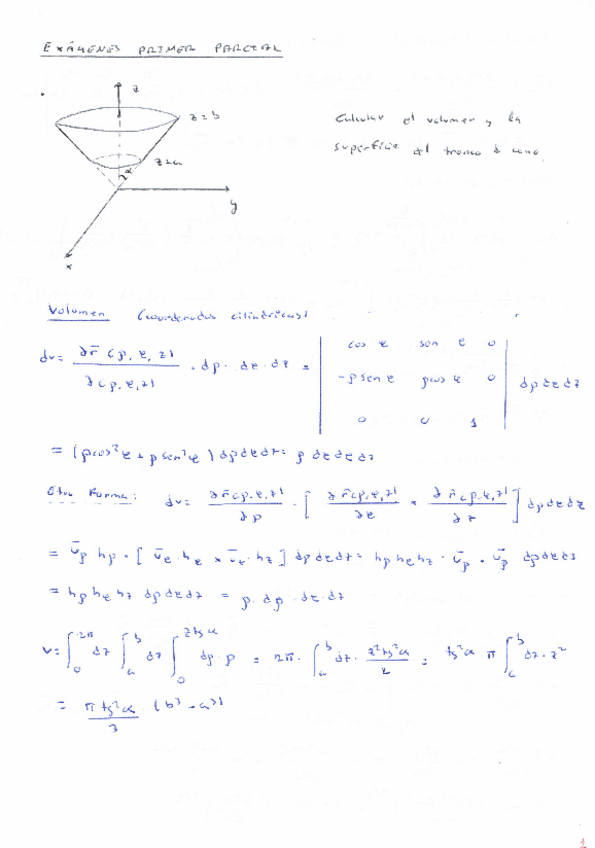 EXÁMENES PRIMER PARCIAL
z
z = b
z = a
α
y
x
Calcular el volumen y la
superficie del tronco de cono.
Volumen (coordenadas cilíndricas)
dv = ∂r̄(ρ,φ,z) / ∂(ρ,φ,z) · dρ · dφ · dz = | cos φ sen φ 0 |
| -ρ sen φ ρ cos φ 0 | dρ dφ dz
| 0 0 1 |
= (ρ cos²φ + ρ sen²φ) dρ dφ dz = ρ dφ dφ dz
Otra forma: dv = ∂r̄(ρ,φ,z)/∂ρ · [ ∂r̄(ρ,φ,z)/∂φ × ∂r̄(ρ,φ,z)/∂z ] dρ dφ dz
= ū_ρ h_ρ · [ ū_φ · h_φ × ū_φ · h_z ] dρ dφ dz = h_ρ h_φ h_z · ū_ρ · ū_ρ dρ dφ dz
= h_ρ h_φ h_z dρ dφ dz = ρ · dρ · dφ · dz
v = ∫₀^2π dz ∫_a^b dz ∫₀^z tg α dρ · ρ = 2π · ∫_a^b dz · z² tg² α / 2 = tg² α π ∫_a^b dz · z²
= π tg² α / 3 · (b³ - a³)
1